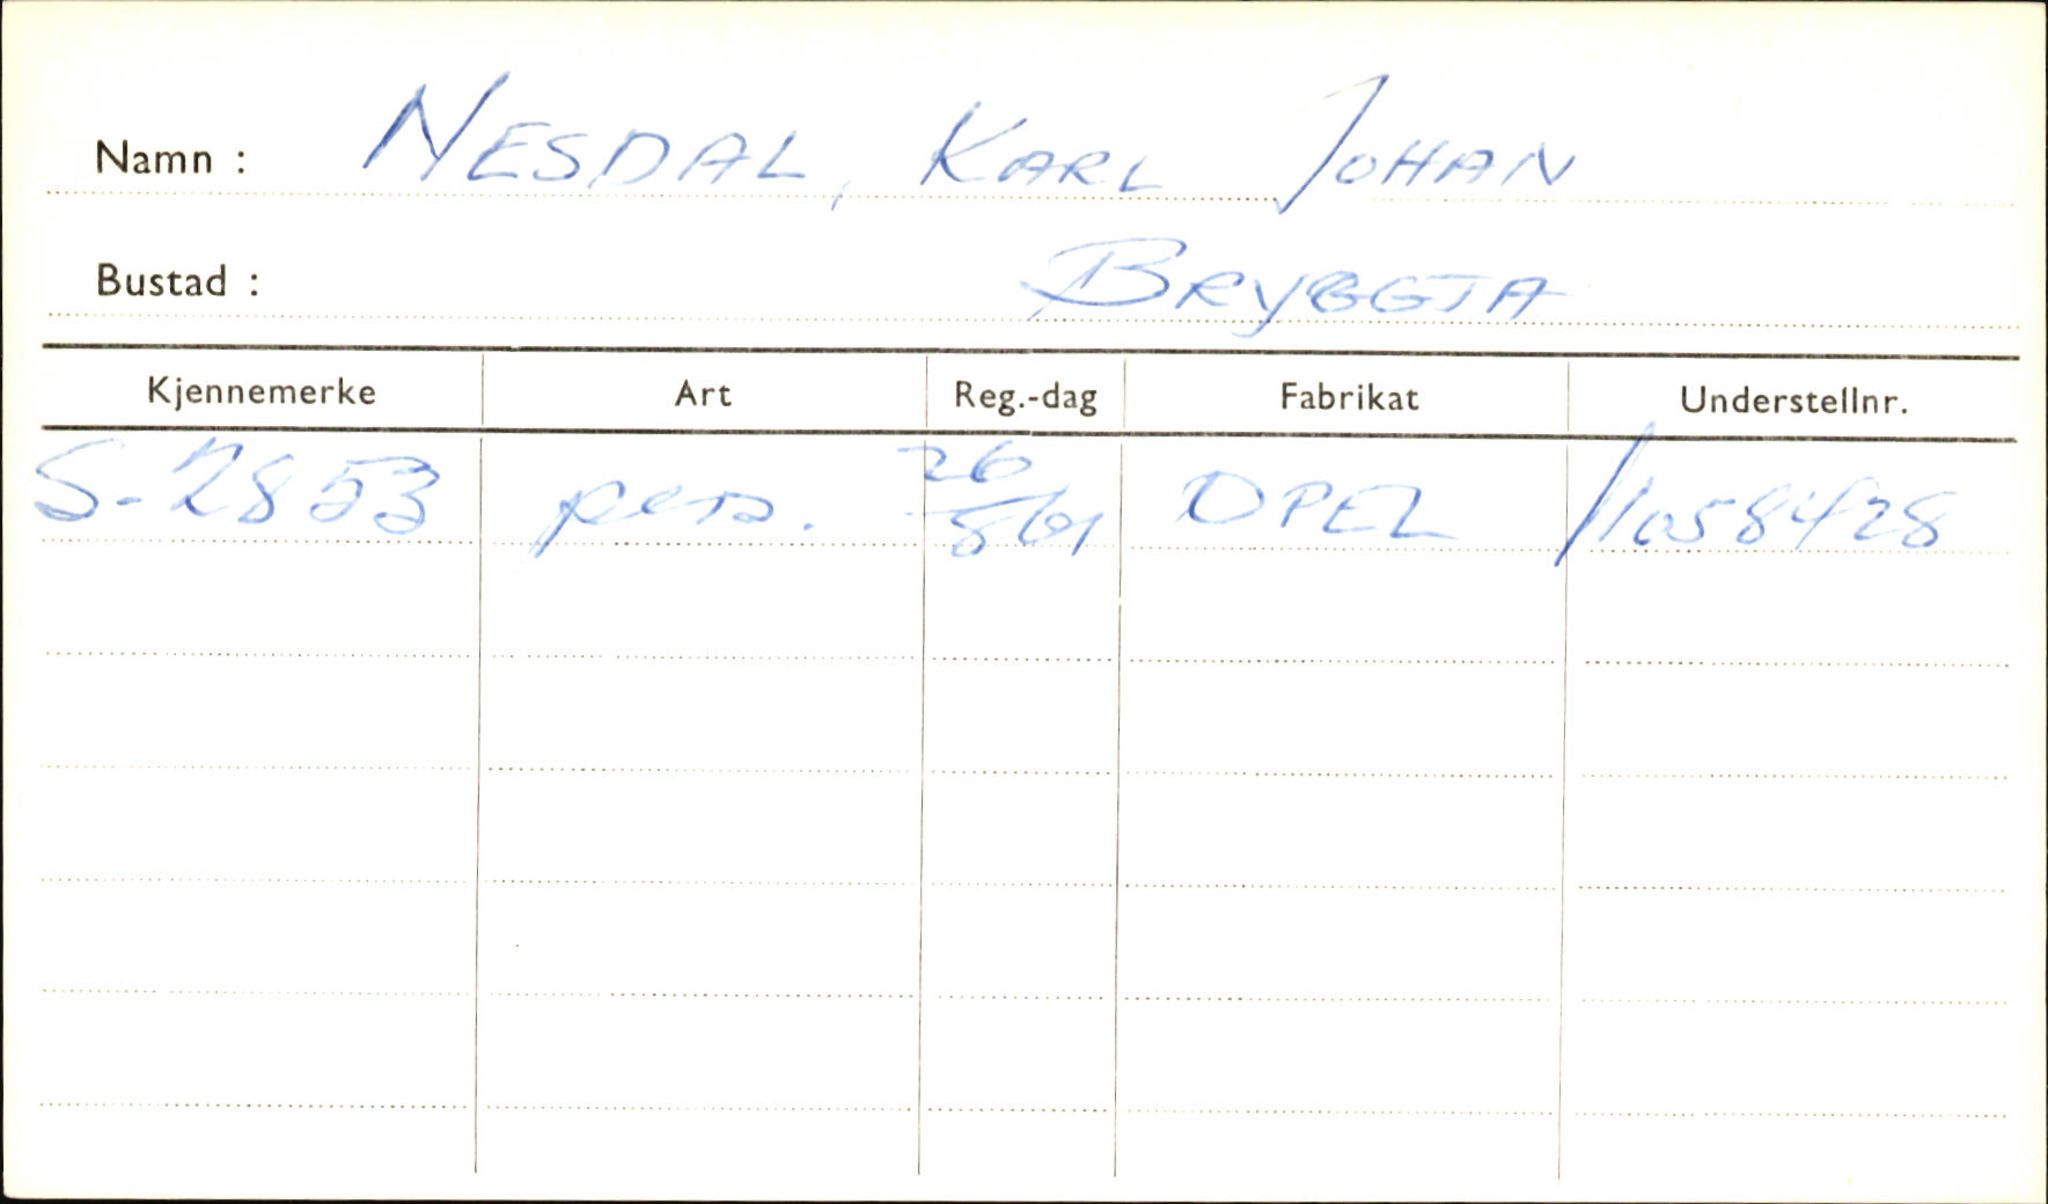 Namn : NESDAL, KARL JOHAN
Bustad : BRYGGJA
Kjennemerke Art Reg.-dag Fabrikat Understellnr.
S-2853 pers. 26/8 69 OPEL 11058428